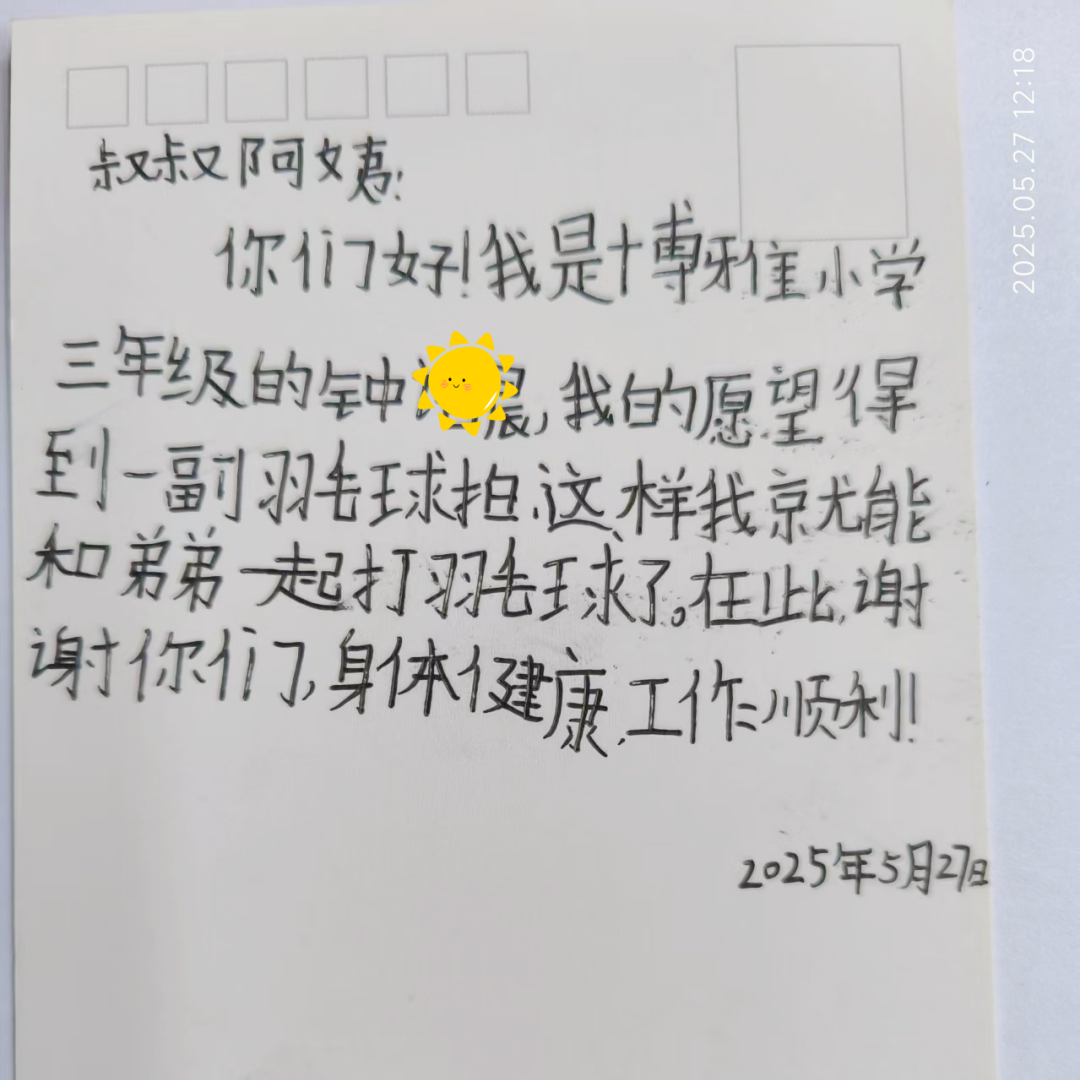 叔叔阿姨:
你们好!我是博雅小学
三年级的钟晨,我的愿望得
到一副羽毛球拍,这样我就能
和弟弟一起打羽毛球了。在此,谢
谢你们,身体健康,工作顺利!
2025年5月27日
2025.05.27 12:18